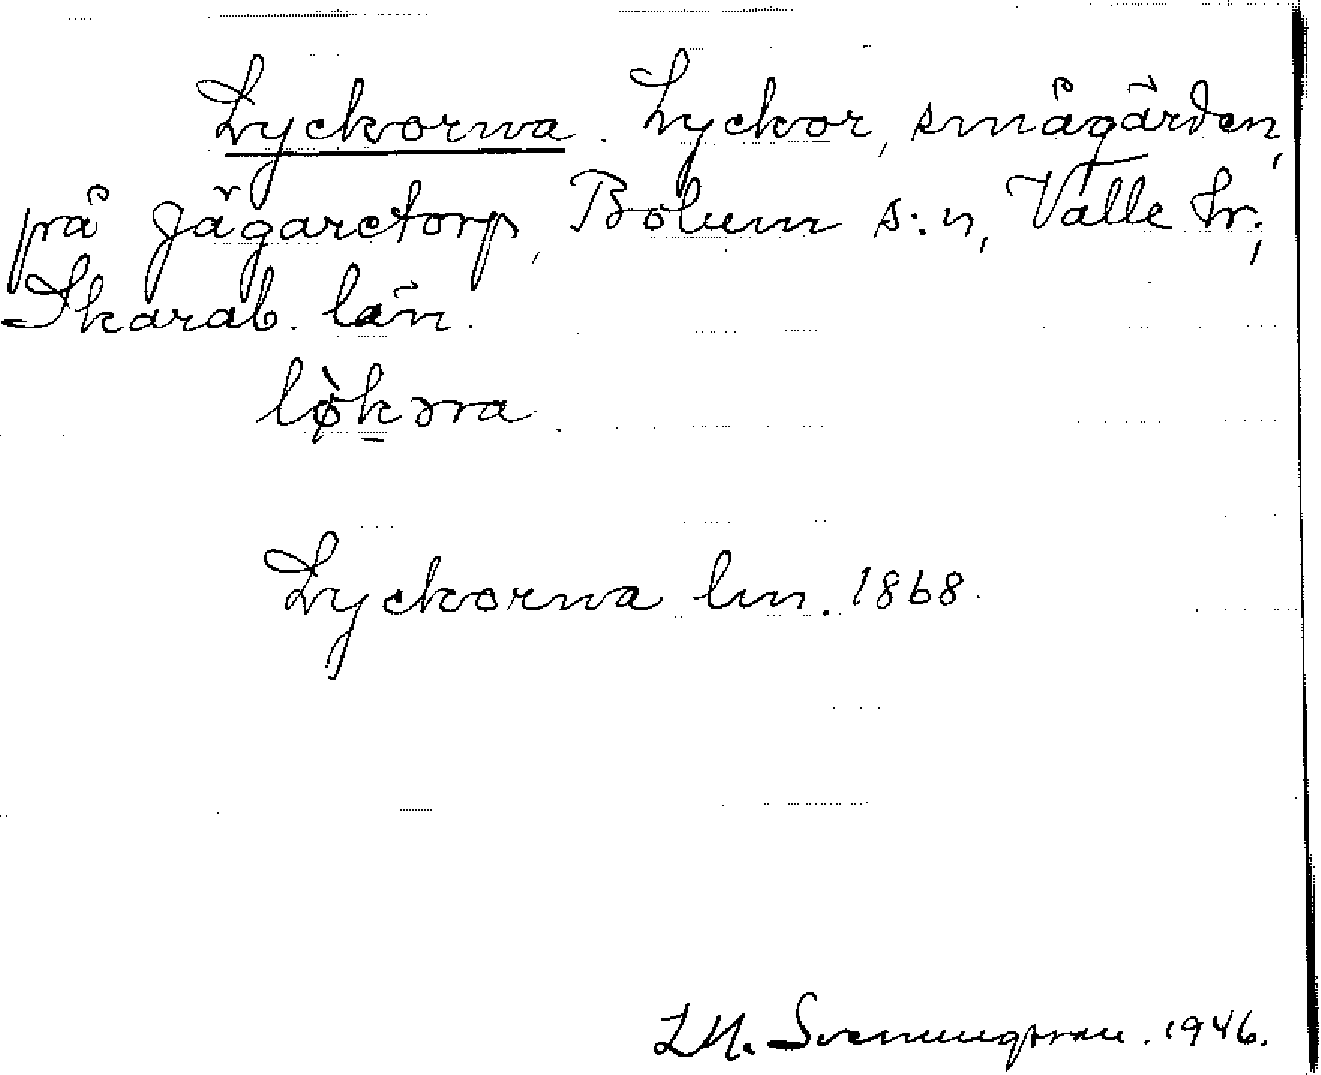 Lyckorna. Lyckor, smågärden,
på Jägaretorp, Bolum s:n, Valle hr;
Skarab. län.
lø̀kɔra.
Lyckorna lm. 1868.
L M. Svenungsson. 1946.